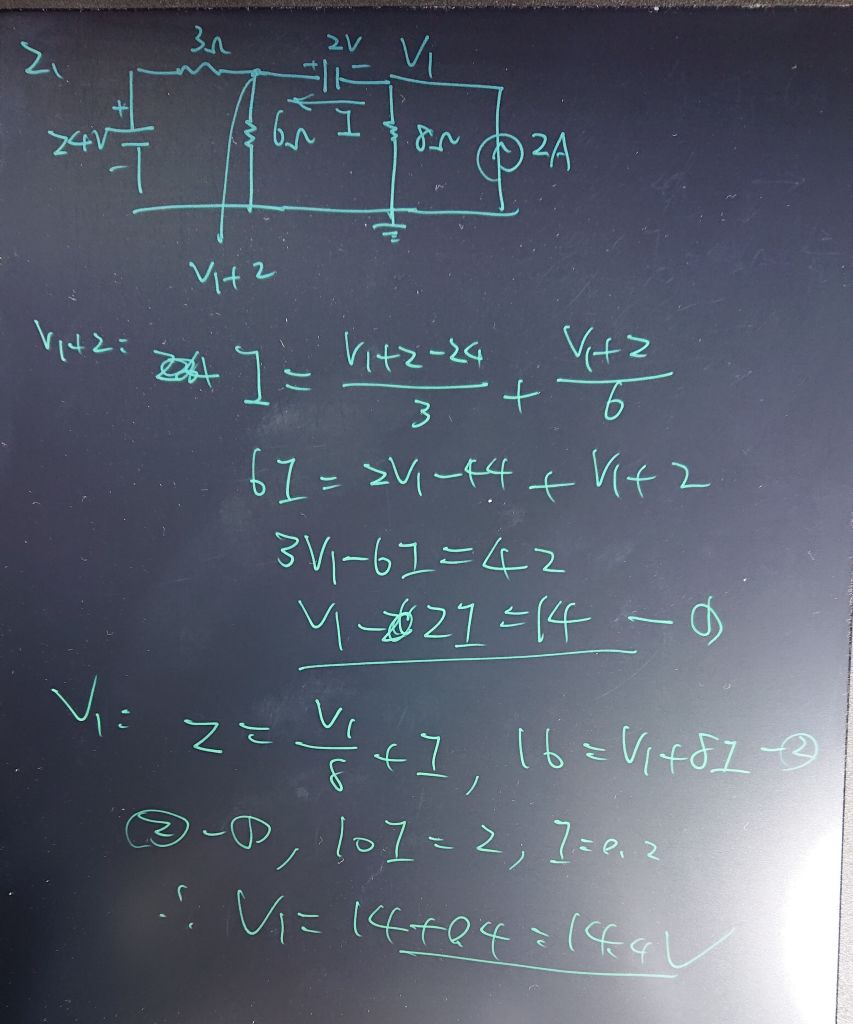 2.
3Ω 2V V₁
+ -
+ 24V - 6Ω I 8Ω 2A
V₁+2
V₁+2: I = (V₁+2-24)/3 + (V₁+2)/6
6I = 2V₁-44 + V₁+2
3V₁-6I=42
V₁-2I=14 - ①
V₁: 2 = V₁/8 + I, 16 = V₁+8I - ②
②-①, 10I = 2, I=0.2
∴ V₁= 14+0.4 = 14.4V